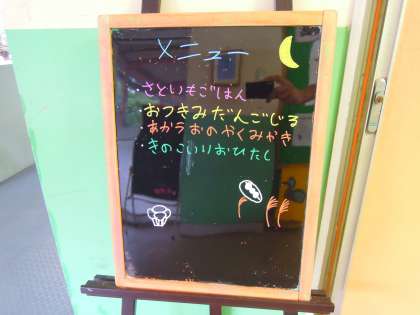 メニュー
・さといもごはん
・おつきみだんごじる
・あかうおのやくみやき
・きのこいりおひたし